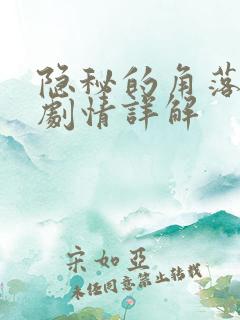 隐秘的角落
劇情詳解
宋如亞
未任同意禁止转载